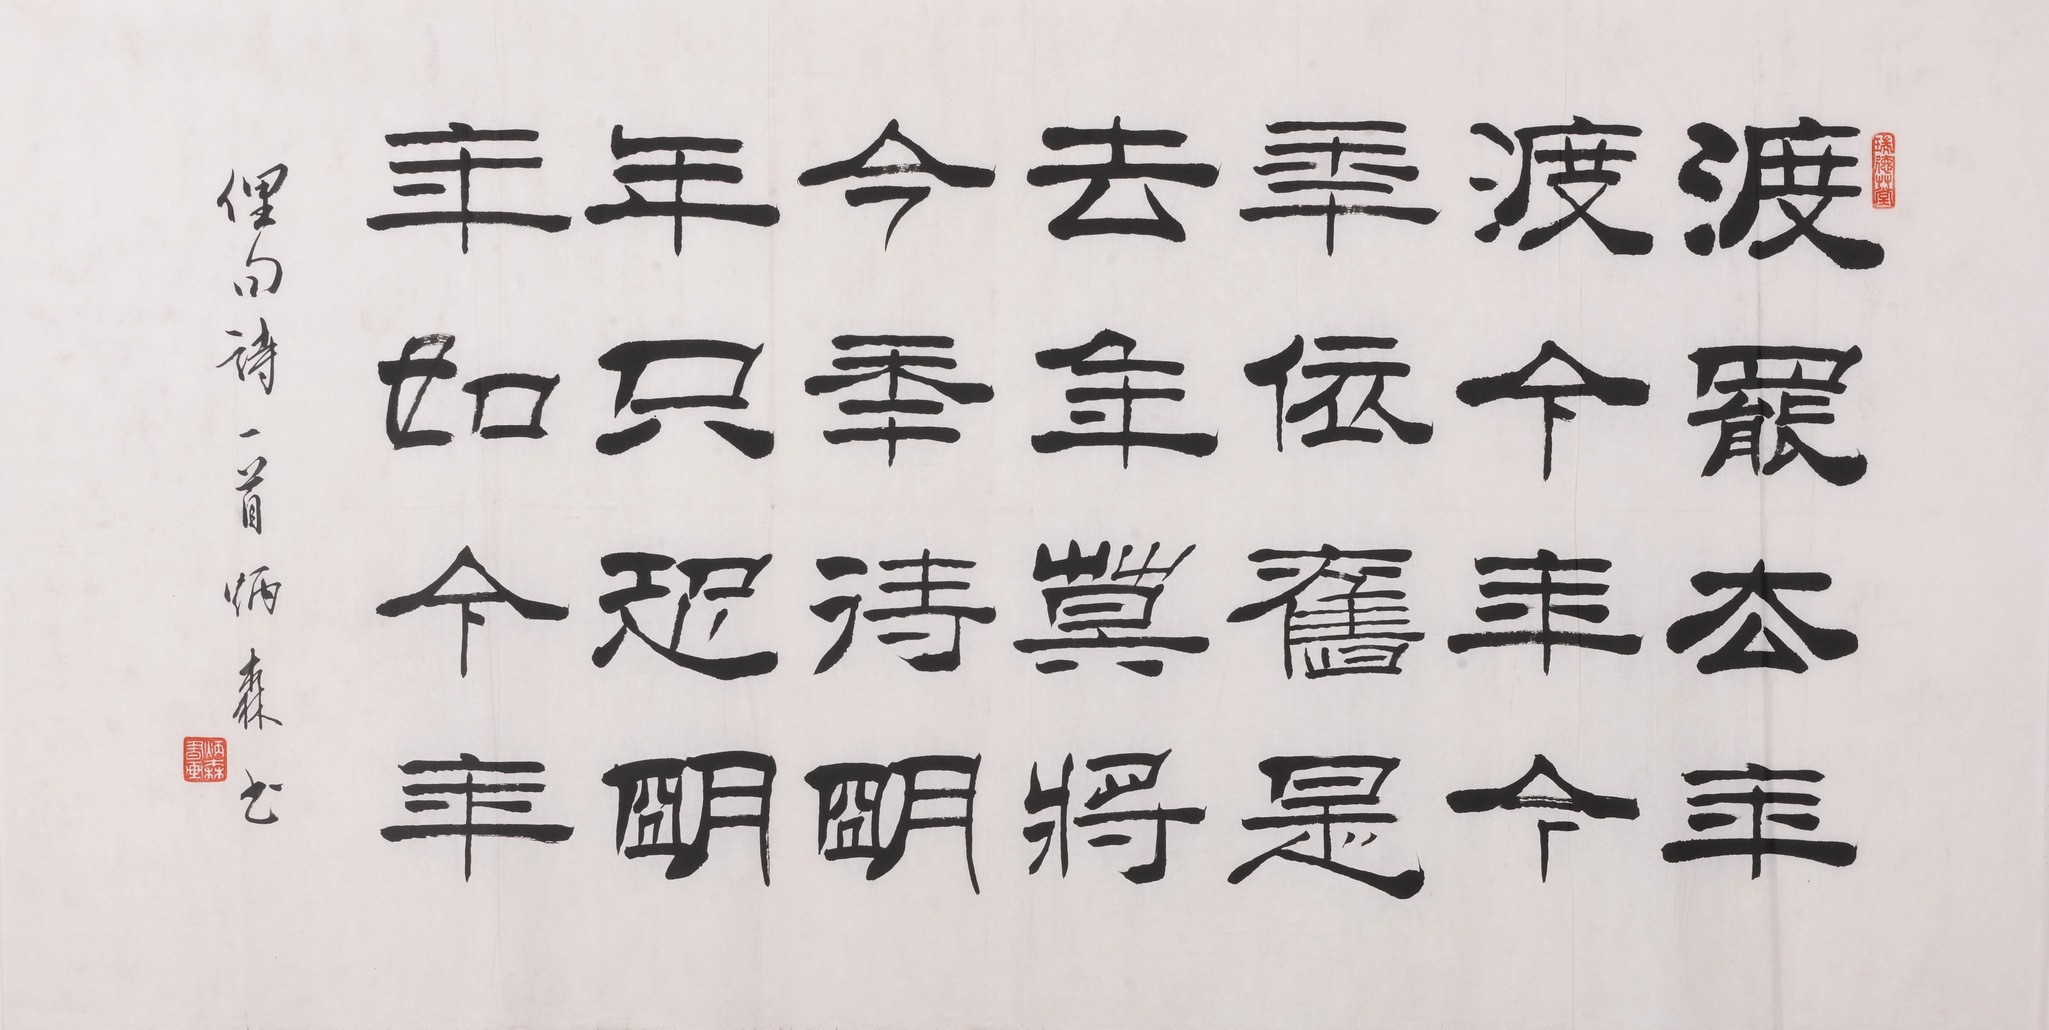 渡罷去年
渡今年今
年依舊是
去年莫將
今年待明
年只恐明
年如今年
俚句詩一首炳森书
炳森書畫